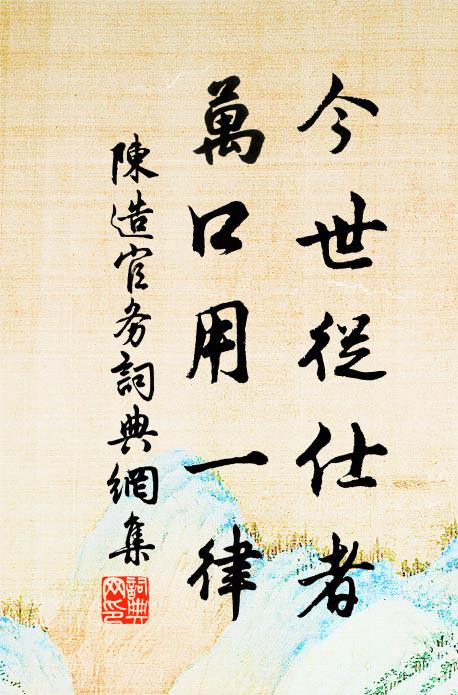 今世從仕者
萬口用一律
陳造官务詞典網集
詞典